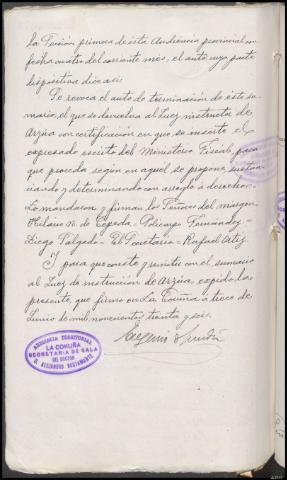 la Sección primera de esta Audiencia provincial con
fecha cuatro del corriente mes, el auto cuya parte
dispositiva dice asi:
Se revoca el auto de terminación de este su-
mario, el que se devuelva al Juez instructor de
Arzúa con certificación en que se inserte el
expresado escrito del Ministerio Fiscal, para
que proceda según en aquel se propone, sustan-
ciando y determinando con arreglo a derecho=
Lo mandaron y firman los Señores del margen
Hilario N. de Cepeda= Policarpo Fernández=
Diego Salgado= El Secretario= Rafael Ortiz.
Y para que conste y remitir con el sumario
al Juez de instrucción de Arzúa, expido la
presente, que firmo en La Coruña a trece de
Junio de mil novecientos treinta y seis.
AUDIENCIA TERRITORIAL
LA CORUÑA
SECRETARIA DE SALA
DEL DOCTOR
D. ALEJANDRO BUSTAMANTE